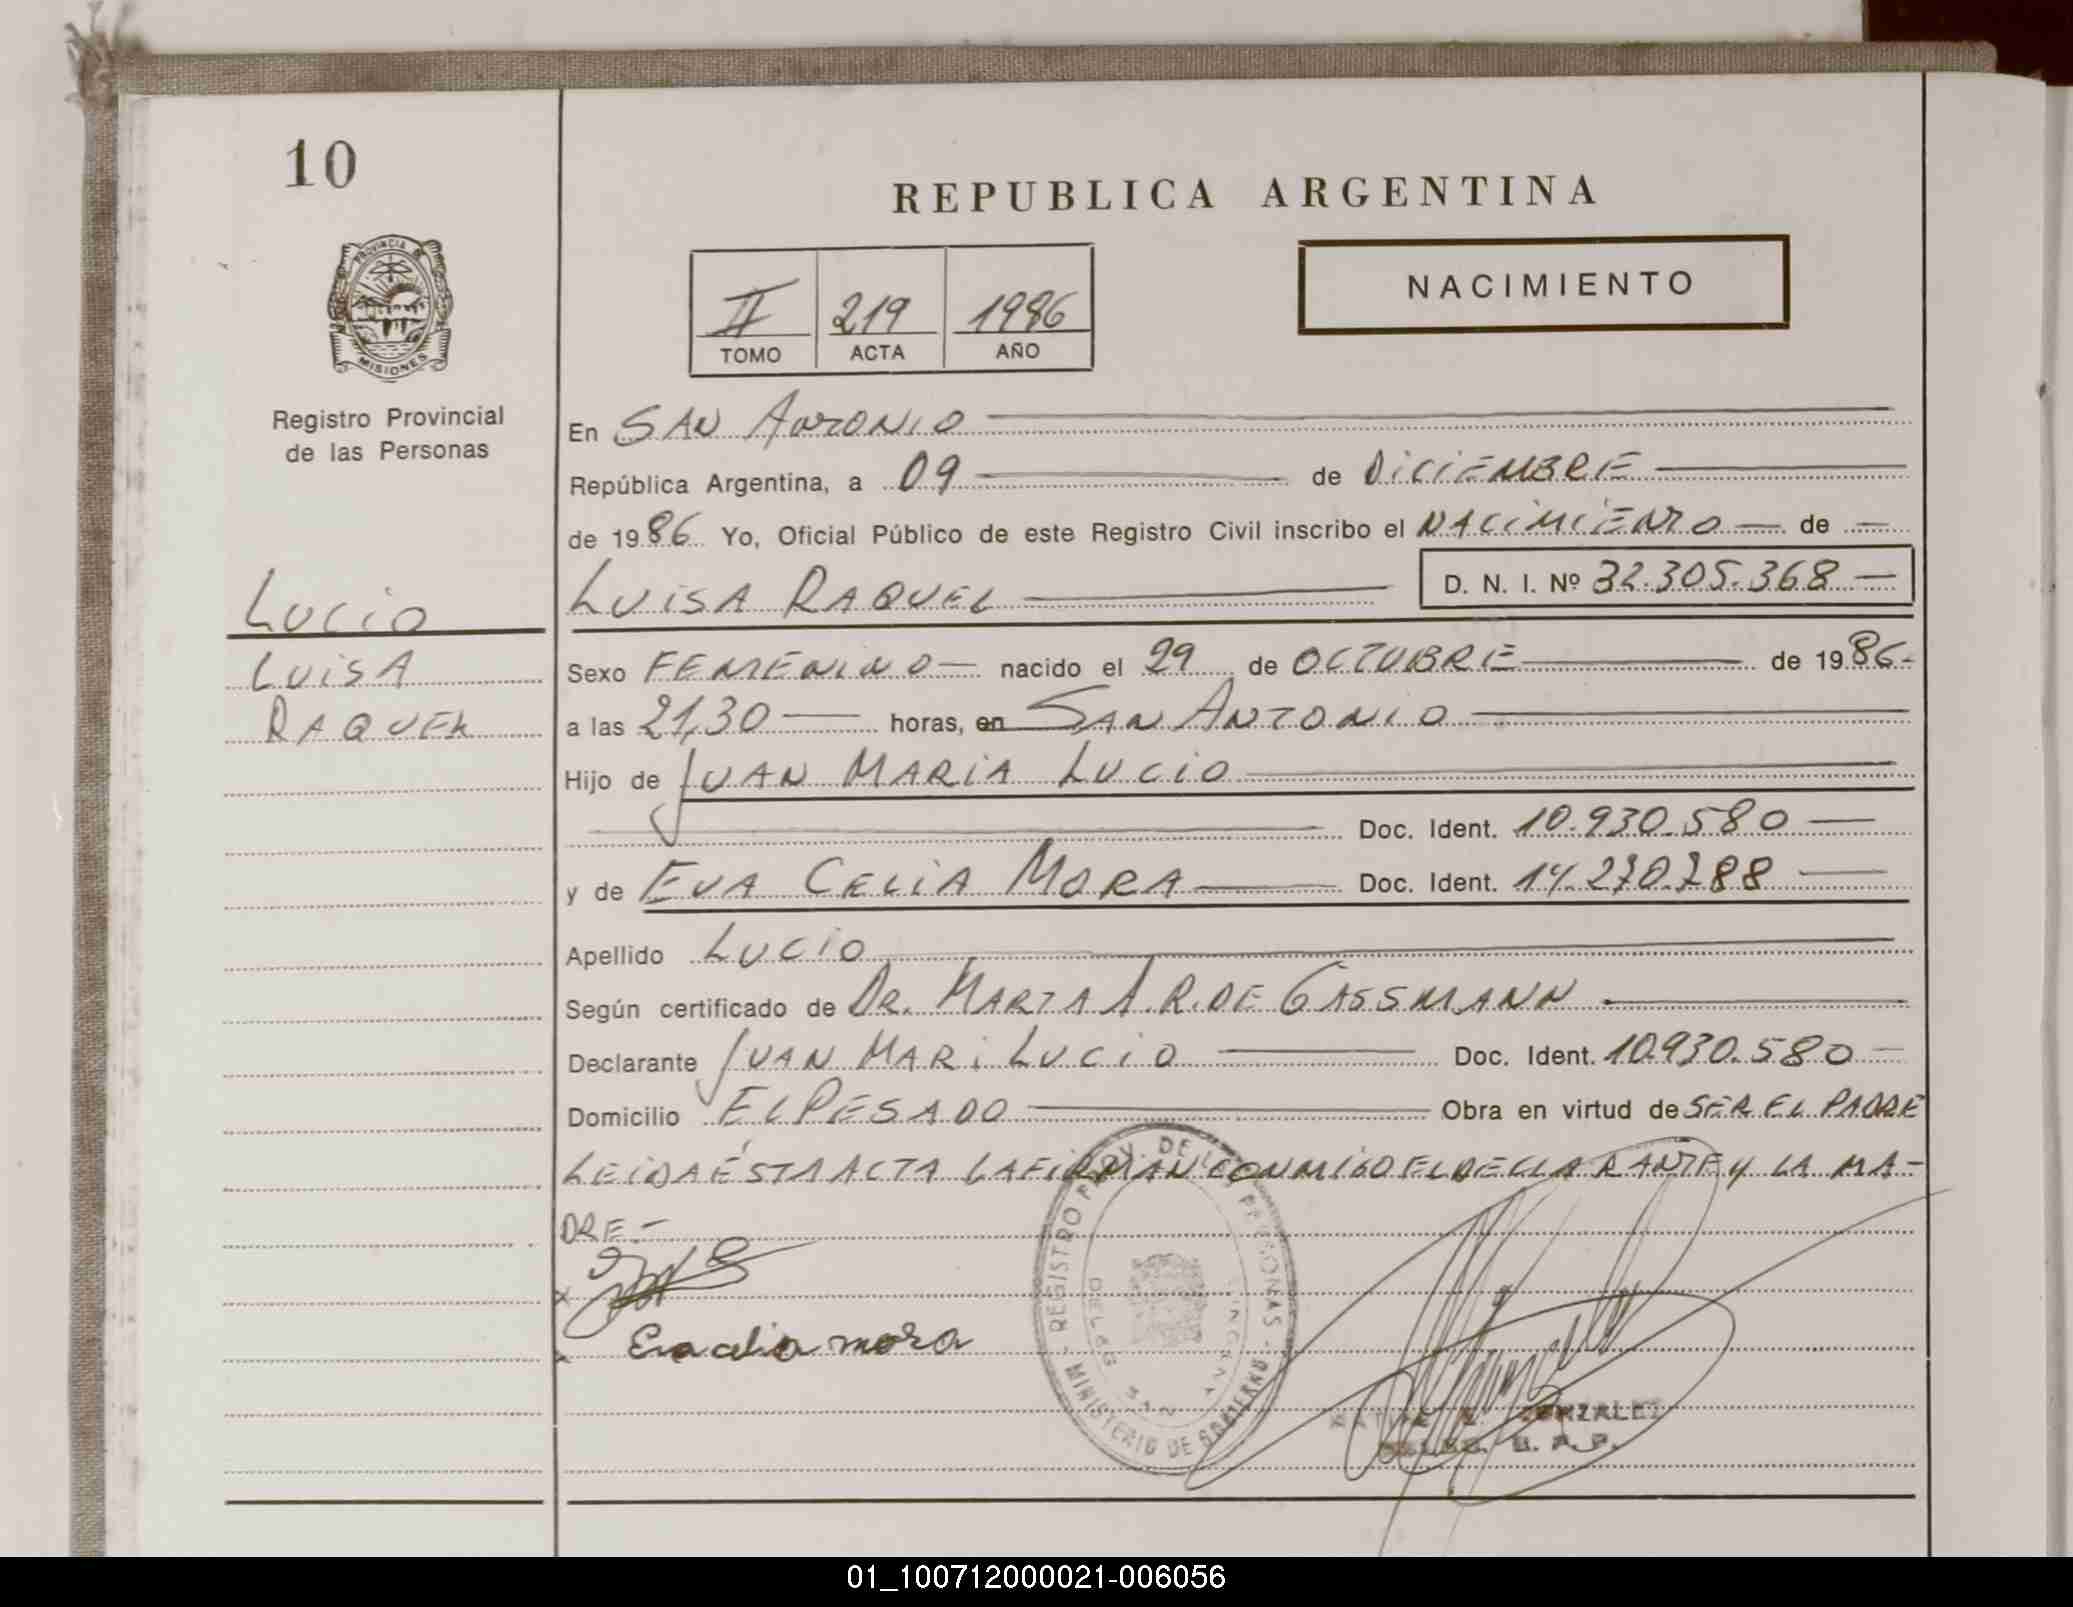 10
REPUBLICA ARGENTINA
PROVINCIA DE
MISIONES
II 219 1986
TOMO ACTA AÑO
NACIMIENTO
Registro Provincial
de las Personas
En SAN ANTONIO
República Argentina, a 09 de DICIEMBRE
de 1986 Yo, Oficial Público de este Registro Civil inscribo el NACIMIENTO de
LUCIO
LUISA RAQUEL D. N. I. Nº 32.305.368
LUISA
RAQUEL
Sexo FEMENINO nacido el 29 de OCTUBRE de 1986
a las 21,30 horas, en SAN ANTONIO
Hijo de JUAN MARIA LUCIO
Doc. Ident. 10.930.580
y de EVA CELIA MORA Doc. Ident. 14.270.788
Apellido LUCIO
Según certificado de DR. MARTA A. R. DE GASSMANN
Declarante JUAN MARI LUCIO Doc. Ident. 10.930.580
Domicilio EL PESADO Obra en virtud de SER EL PADRE
LEIDA ÉSTA ACTA LA FIRMAN CONMIGO EL DECLARANTE Y LA MA-
DRE.-
x
x Eva celia mora
REGISTRO PROV. DE LAS PERSONAS
MINISTERIO DE GOBIERNO
GONZALEZ
01_100712000021-006056